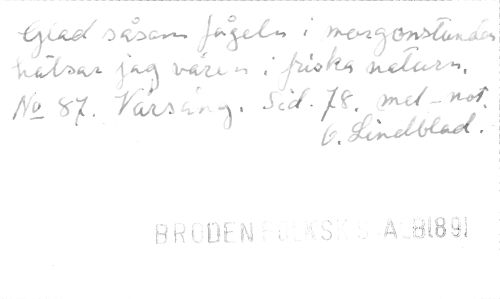 Glad såsom fågeln i morgonstunden
hälsar jag våren i friska naturn.
No 87. Vårsång. Sid. 78. mel-not.
O. Lindblad.
BRODEN FOLKSK S A B(89)